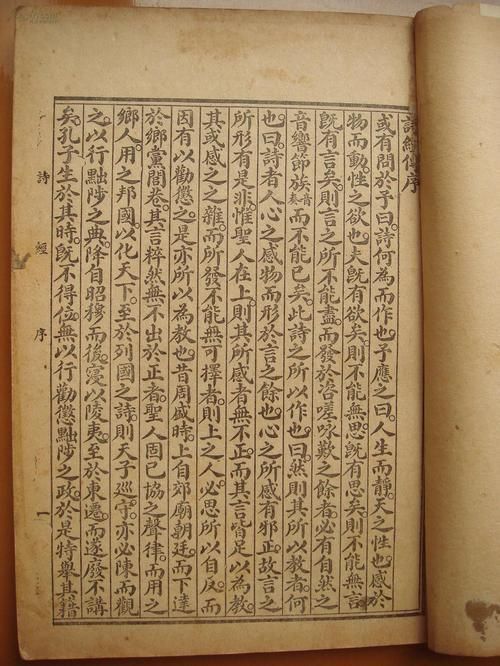 詩經傳序
或有問於予曰。詩何為而作也。予應之曰。人生而靜。天之性也。感於
物而動。性之欲也。夫旣有欲矣。則不能無思。旣有思矣。則不能無言
旣有言矣。則言之所不能盡。而發於咨嗟咏歎之餘者。必有自然之
音響節族音奏而不能已矣。此詩之所以作也。曰。然則其所以教者。何
也。曰。詩者。人心之感物而形於言之餘也。心之所感有邪正。故言之
所形有是非。惟聖人在上。則其所感者無不正。而其言皆足以為教。
其或感之之雜。而所發不能無可擇者。則上之人必思所以自反。而
因有以勸懲之。是亦所以為教也。昔周盛時。上自郊廟朝廷。而下達
於鄉黨閭巷。其言粹然無不出於正者。聖人固已協之聲律。而用之
鄉人。用之邦國。以化天下。至於列國之詩。則天子巡守。亦必陳而觀
之。以行黜陟之典。降自昭穆而後。寖以陵夷。至於東遷。而遂廢不講
矣。孔子生於其時。旣不得位。無以行勸懲黜陟之政。於是特舉其籍
詩經 序 一